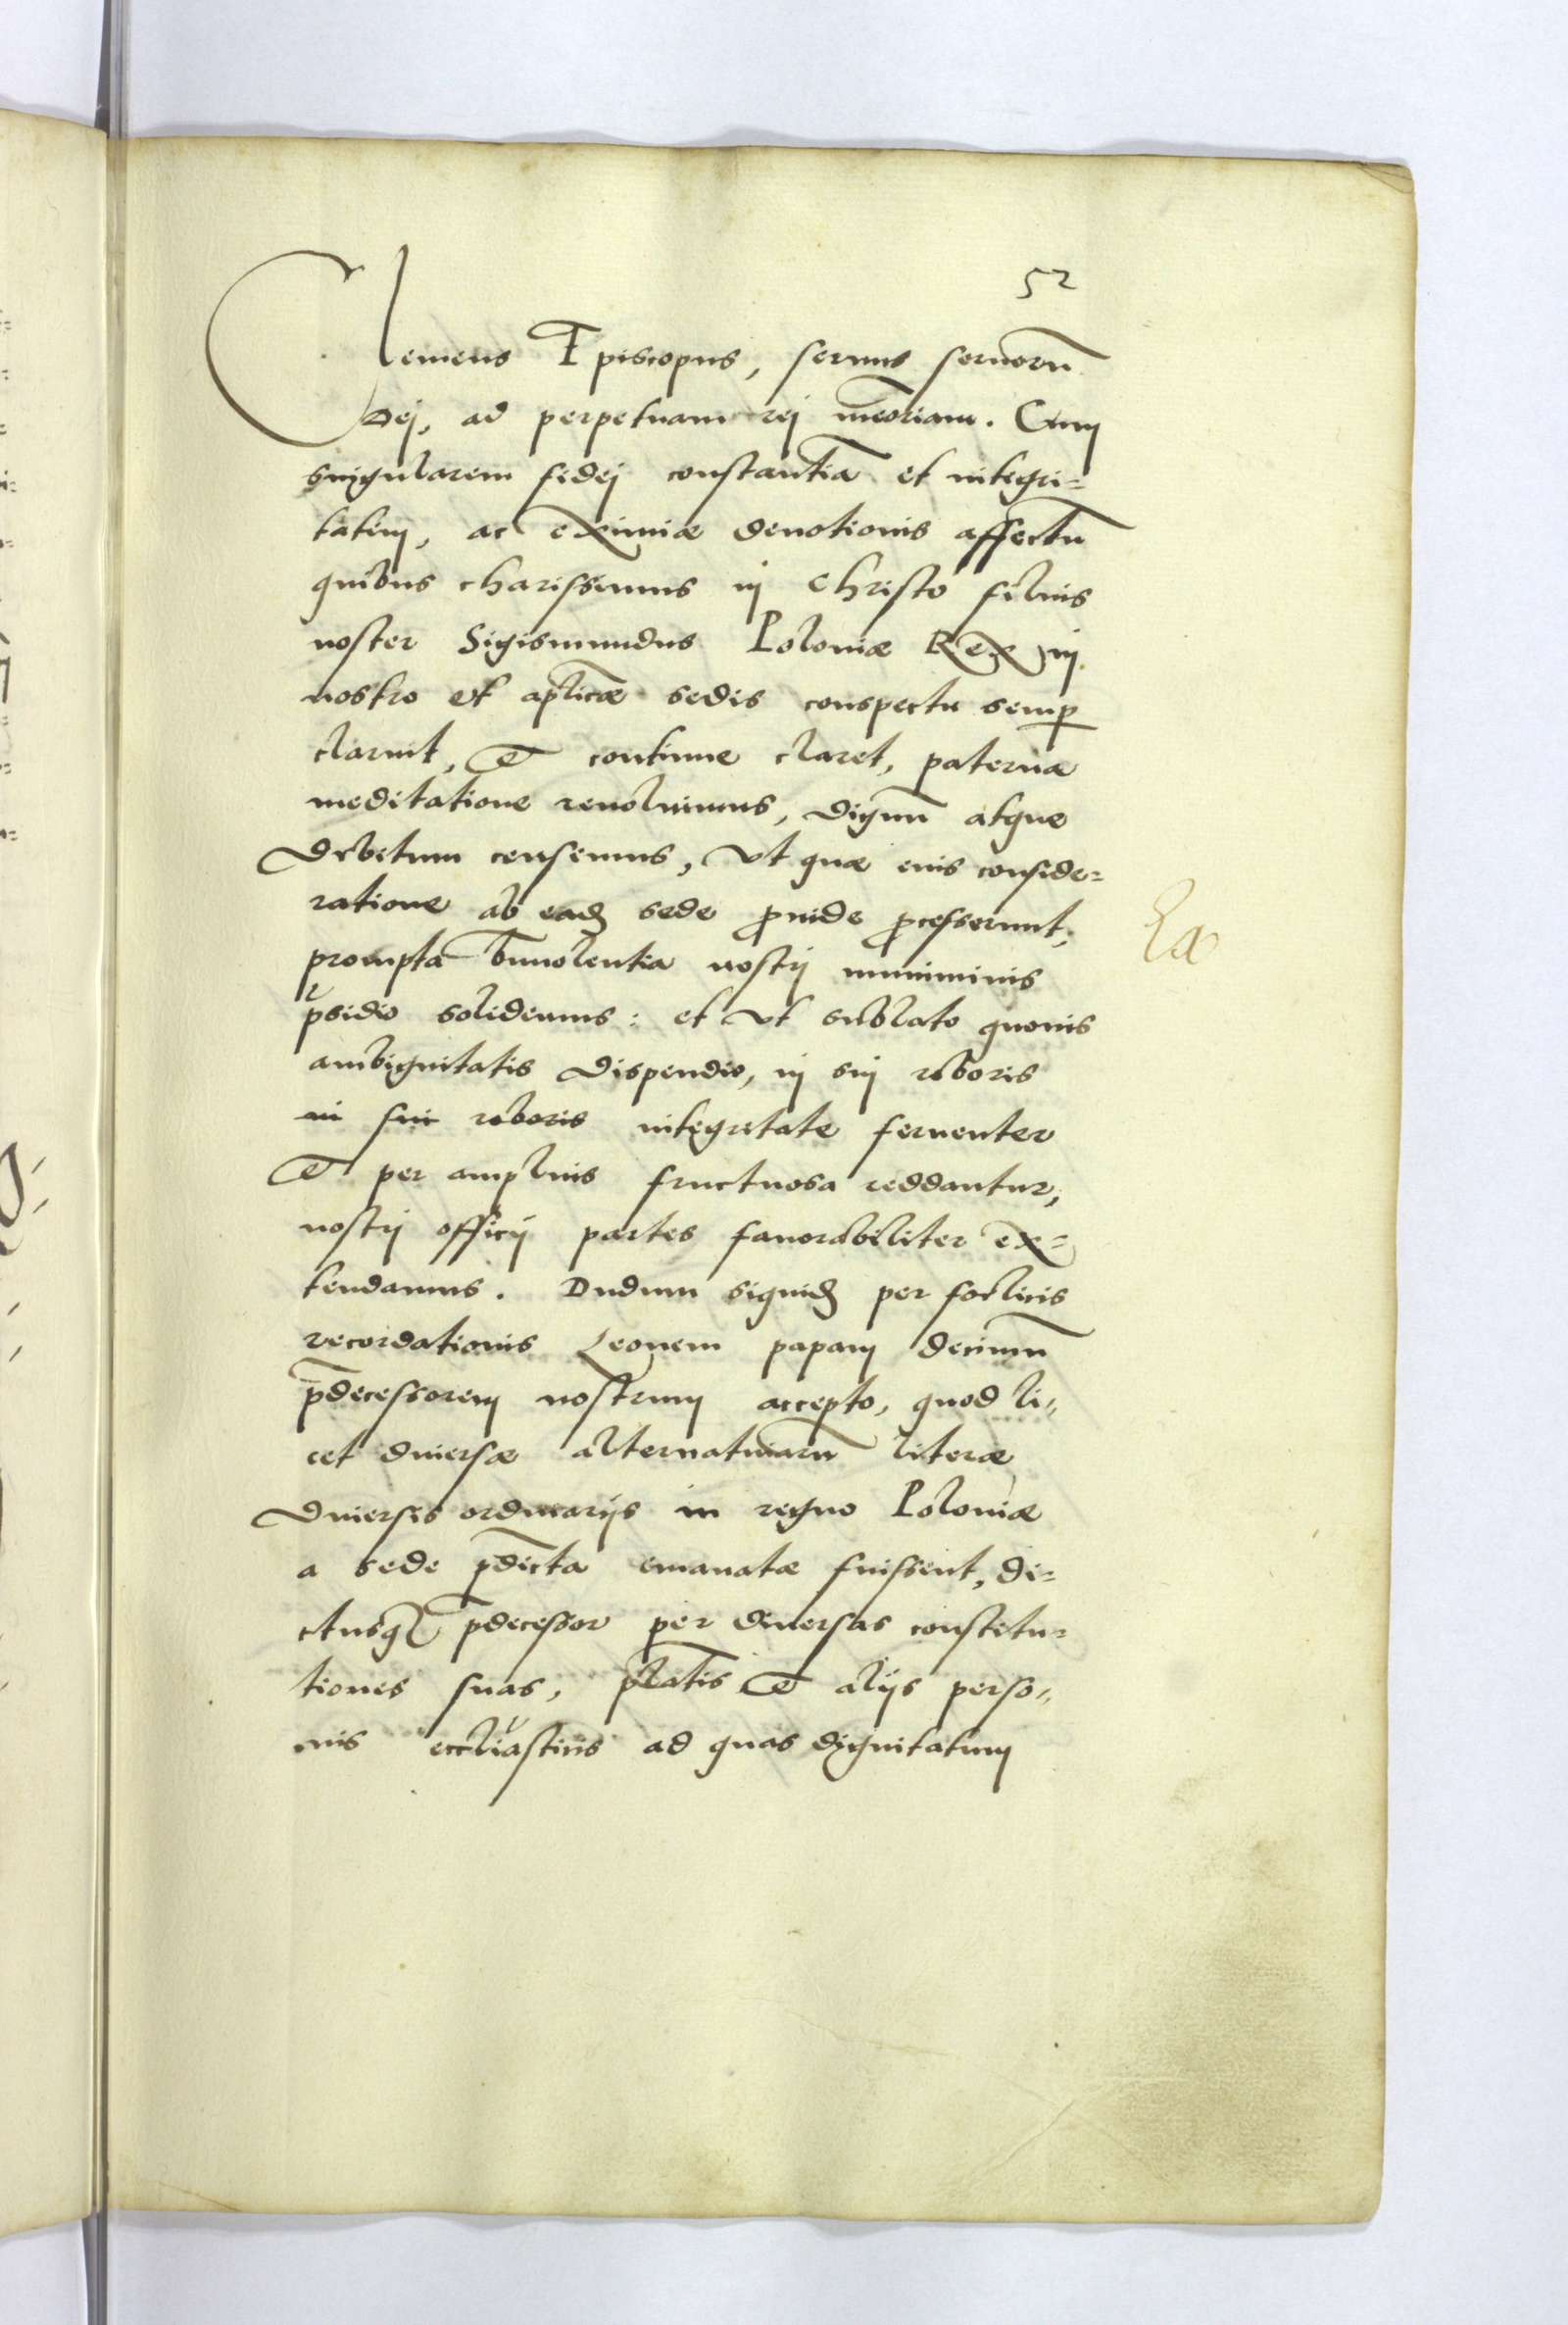 52
Clemens Episcopus, seruus seruorū
Dej, ad perpetuam rej meōriam. Cum
singularem fidej constantiā et integri=
tatem, ac eximiæ deuotionis affectū
quibus charissimus in Christo filius
noster Sigismundus Poloniæ Rex in
nostro et aplicǣ sedis conspectu semꝑ
claruit, et continue claret, paterna
meditatione reuoluimus, dignū atque
debitum censemus, vt quæ eius conside=
ratione ab eadꝫ sede ꝓuide ꝓcesserunt,
prompta bn̄uolentia nostrj muniminis
p̄sidio solidemus: et vt sublato quouis
ambiguitatis dispendio, in suj roboris
in sui roboris integritate feruenter
et per amplius fructuosa reddantur,
nostrj officij partes fauorabiliter ex=
tendamus. Dudum siquidꝫ per foelicis
recordationis Leonem papam decimū
p̄decessorem nostrum accepto, quod li=
cet diuersæ alternatiuarū literæ
diuersis ordinarijs in regno Poloniæ
a sede p̄dicta emanatæ fuissent, di=
ctusqꝫ p̄decessor per diuersas constitu=
tiones suas, p̄latis et alijs perso=
nis eccliasticis ad quas dignitatum